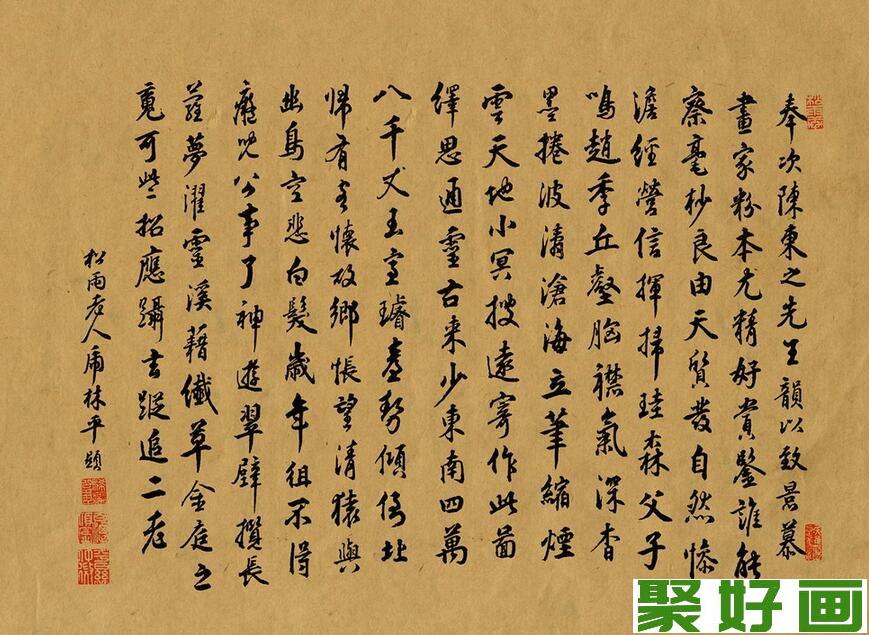 奉次陳東之先生韻以致景慕
畫家粉本尤精好賞鑒誰能
察毫杪良由天質發自然慘
澹經營信揮掃珪森父子
鳴趙季丘壑胸襟氣深杳
墨捲波濤滄海立筆縮煙
雲天地小冥搜遠寄作此圖
繹思通靈古來少東南四萬
八千丈玉室璿臺勢傾倚北
歸有客懷故鄉悵望清猿與
幽鳥空悲白髮歲年徂不得
癡兒公事了神遊翠壁攬長
蘿夢濯靈溪藉纖草金庭之
覓可些招應躡玄蹤追二老
松雨老人虎林平題
聚好画